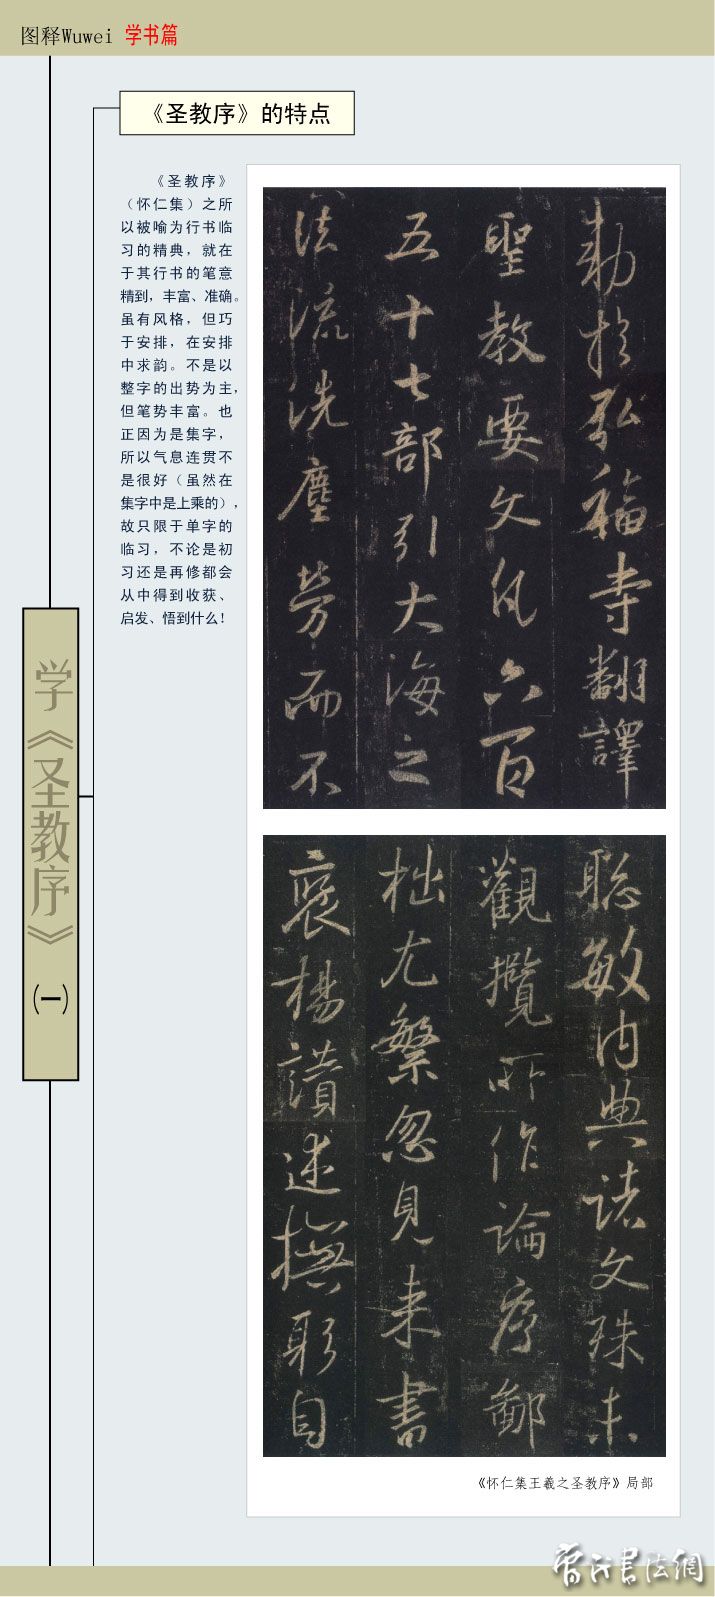 图释Wuwei 学书篇
《圣教序》的特点
《圣教序》
（怀仁集）之所
以被喻为行书临
习的精典，就在
于其行书的笔意
精到，丰富、准确。
虽有风格，但巧
于安排，在安排
中求韵。不是以
整字的出势为主，
但笔势丰富。也
正因为是集字，
所以气息连贯不
是很好（虽然在
集字中是上乘的），
故只限于单字的
临习，不论是初
习还是再修都会
从中得到收获、
启发、悟到什么！
学《圣教序》（一）
勅於弘福寺翻譯
聖教要文凡六百
五十七部引大海之
法流洗塵勞而不
聡敏内典諸文殊未
觀攬所作論序鄙
拙尤繁忽見来書
褒揚讃述撫躬自
《怀仁集王羲之圣教序》局部